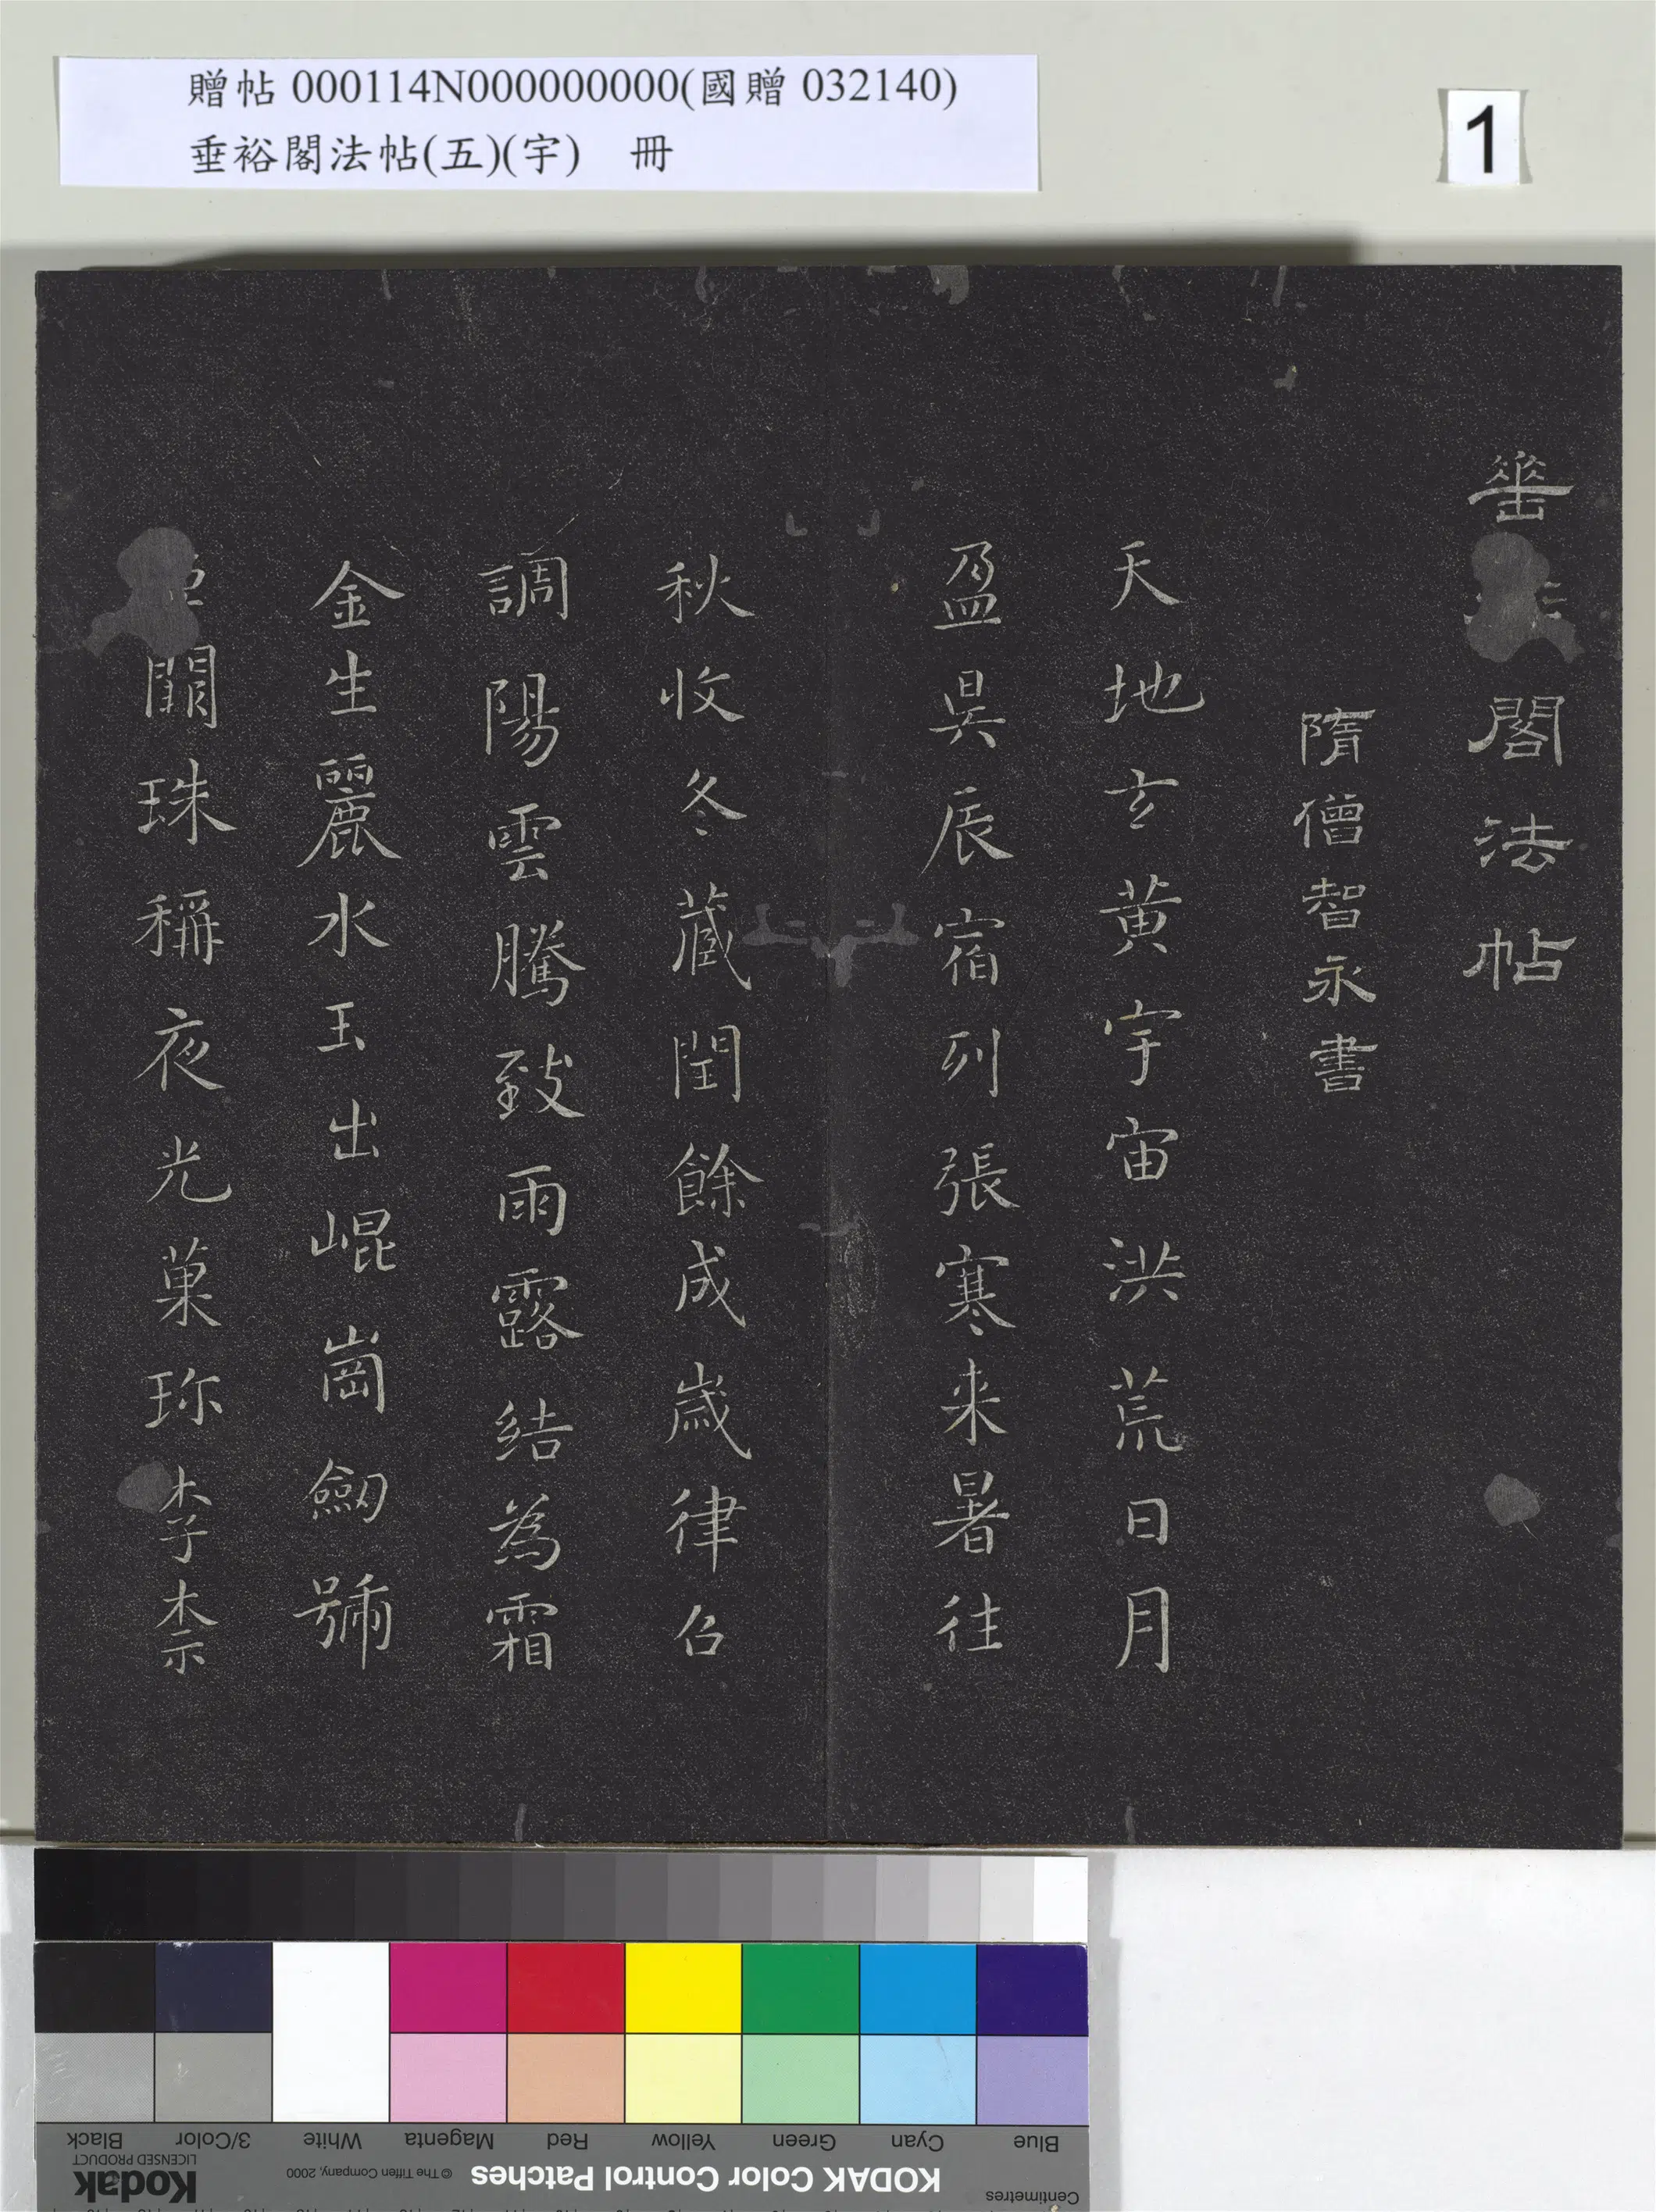 贈帖 000114N000000000(國贈 032140)
垂裕閣法帖(五)(宇) 冊
1
垂 閣法帖
隋僧智永書
天地玄黃宇宙洪荒日月
盈昃辰宿列張寒来暑往
秋收冬藏閏餘成歲律召
調陽雲騰致雨露結為霜
金生麗水玉出崐崗劔號
闕珠稱夜光菓珎李柰
Blue Cyan Green Yellow Red Magenta White 3/Color Black
Centimetres KODAK Color Control Patches © The Tiffen Company, 2000 Kodak LICENSED PRODUCT